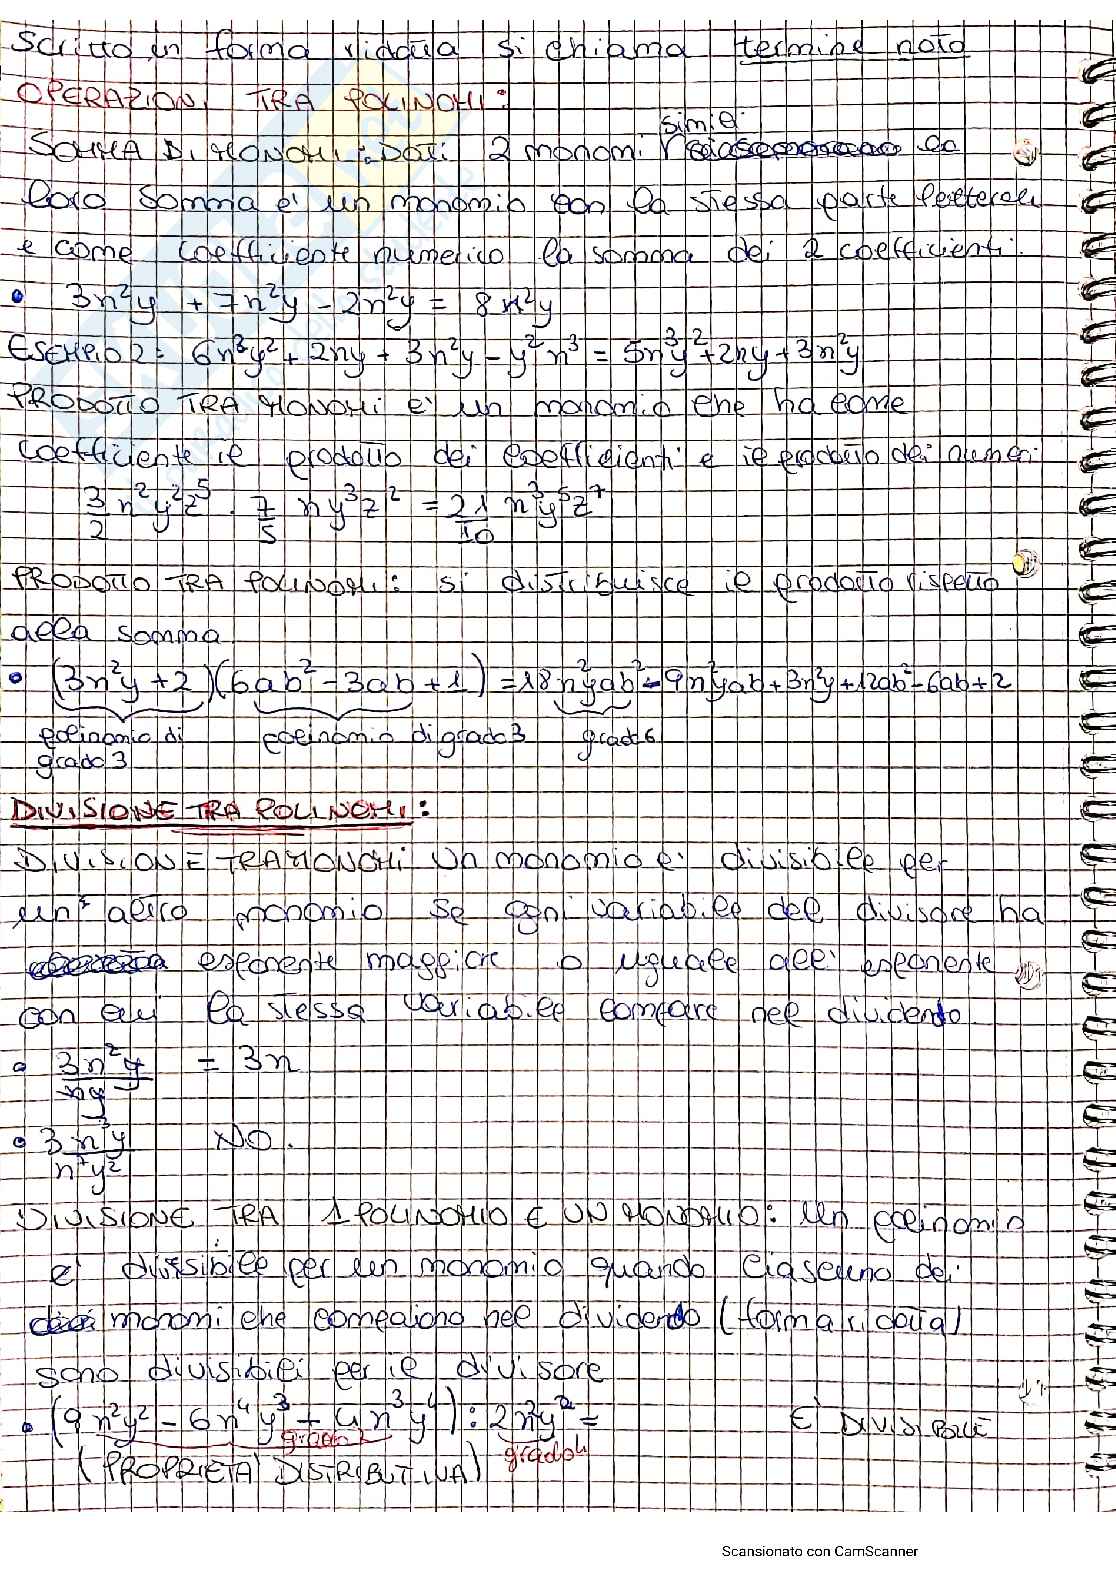 scritto in forma ridotta si chiama termine noto
OPERAZIONI TRA POLINOMI:
simili
SOMMA DI MONOMI: DATI 2 monomi la
loro somma è un monomio con la stessa parte letterale
e come coefficiente numerico la somma dei 2 coefficienti.
• 3x²y + 7x²y - 2x²y = 8x²y
ESEMPIO 2: 6x³y² + 2xy + 3x²y - y²x³ = 5x³y² + 2xy + 3x²y
PRODOTTO TRA MONOMI è un monomio che ha come
coefficiente il prodotto dei coefficienti e il prodotto dei numeri
3/2 x²y²z⁵ · 7/5 xy³z² = 21/10 x³y⁵z⁷
PRODOTTO TRA POLINOMI: si distribuisce il prodotto rispetto
alla somma
• (3x²y + 2)(6ab² - 3ab + 1) = 18x²yab² - 9x²yab + 3x²y + 12ab² - 6ab + 2
polinomio di polinomio di grado 3 grado 6
grado 3
DIVISIONE TRA POLINOMI:
DIVISIONE TRA MONOMI Un monomio è divisibile per
un altro monomio se ogni variabile del divisore ha
esponente maggiore o uguale all'esponente
con cui la stessa variabile compare nel dividendo
• 3x²y/xy = 3x
• 3x³y/x²y² NO.
DIVISIONE TRA 1 POLINOMIO E UN MONOMIO: Un polinomio
è divisibile per un monomio quando ciascuno dei
monomi che compaiono nel dividendo (forma ridotta)
sono divisibili per il divisore
• (9x²y² - 6x⁴y³ + 4x³y⁴) : 2x²y² = E' DIVISIBILE
grado 7 grado 4
(PROPRIETA' DISTRIBUTIVA)
Scansionato con CamScanner